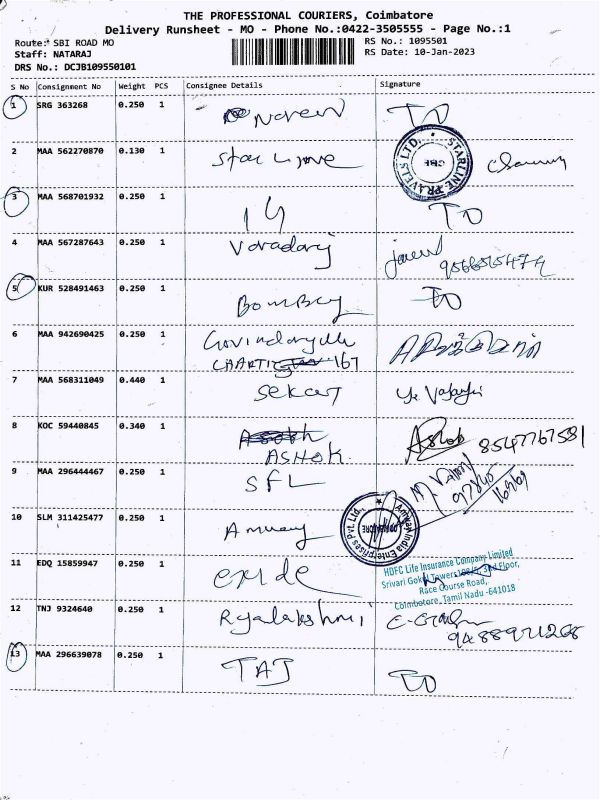 THE PROFESSIONAL COURIERS, Coimbatore
Delivery Runsheet - MO - Phone No.:0422-3505555 - Page No.:1
Route: SBI ROAD MO
Staff: NATARAJ
DRS No.: DCJB109550101
RS No.: 1095501
RS Date: 10-Jan-2023
S No Consignment No Weight PCS Consignee Details Signature
1 SRG 363268 0.250 1 Naveen TO
2 MAA 562270870 0.130 1 Star Line
STARLINE TRAVELS LTD. CBE
3 MAA 568701932 0.250 1 TO
4 MAA 567287643 0.250 1 Varadaraj
5 KUR 528491463 0.250 1 Bombay TO
6 MAA 942690425 0.250 1 167
7 MAA 568311049 0.440 1 Sekar
8 KOC 59440845 0.340 1 ASHOK Ashok 8547767581
9 MAA 296444467 0.250 1 SFL
10 SLM 311425477 0.250 1 Amway
Amway India Enterprises Pvt. Ltd.
11 EDQ 15859947 0.250 1 exide
HDFC Life Insurance Company Limited
Srivari Gokul Towers 3rd Floor,
Race Course Road,
Coimbatore, Tamil Nadu -641018
12 TNJ 9324640 0.250 1 Rajalakshmi
13 MAA 296639078 0.250 1 TAJ TO